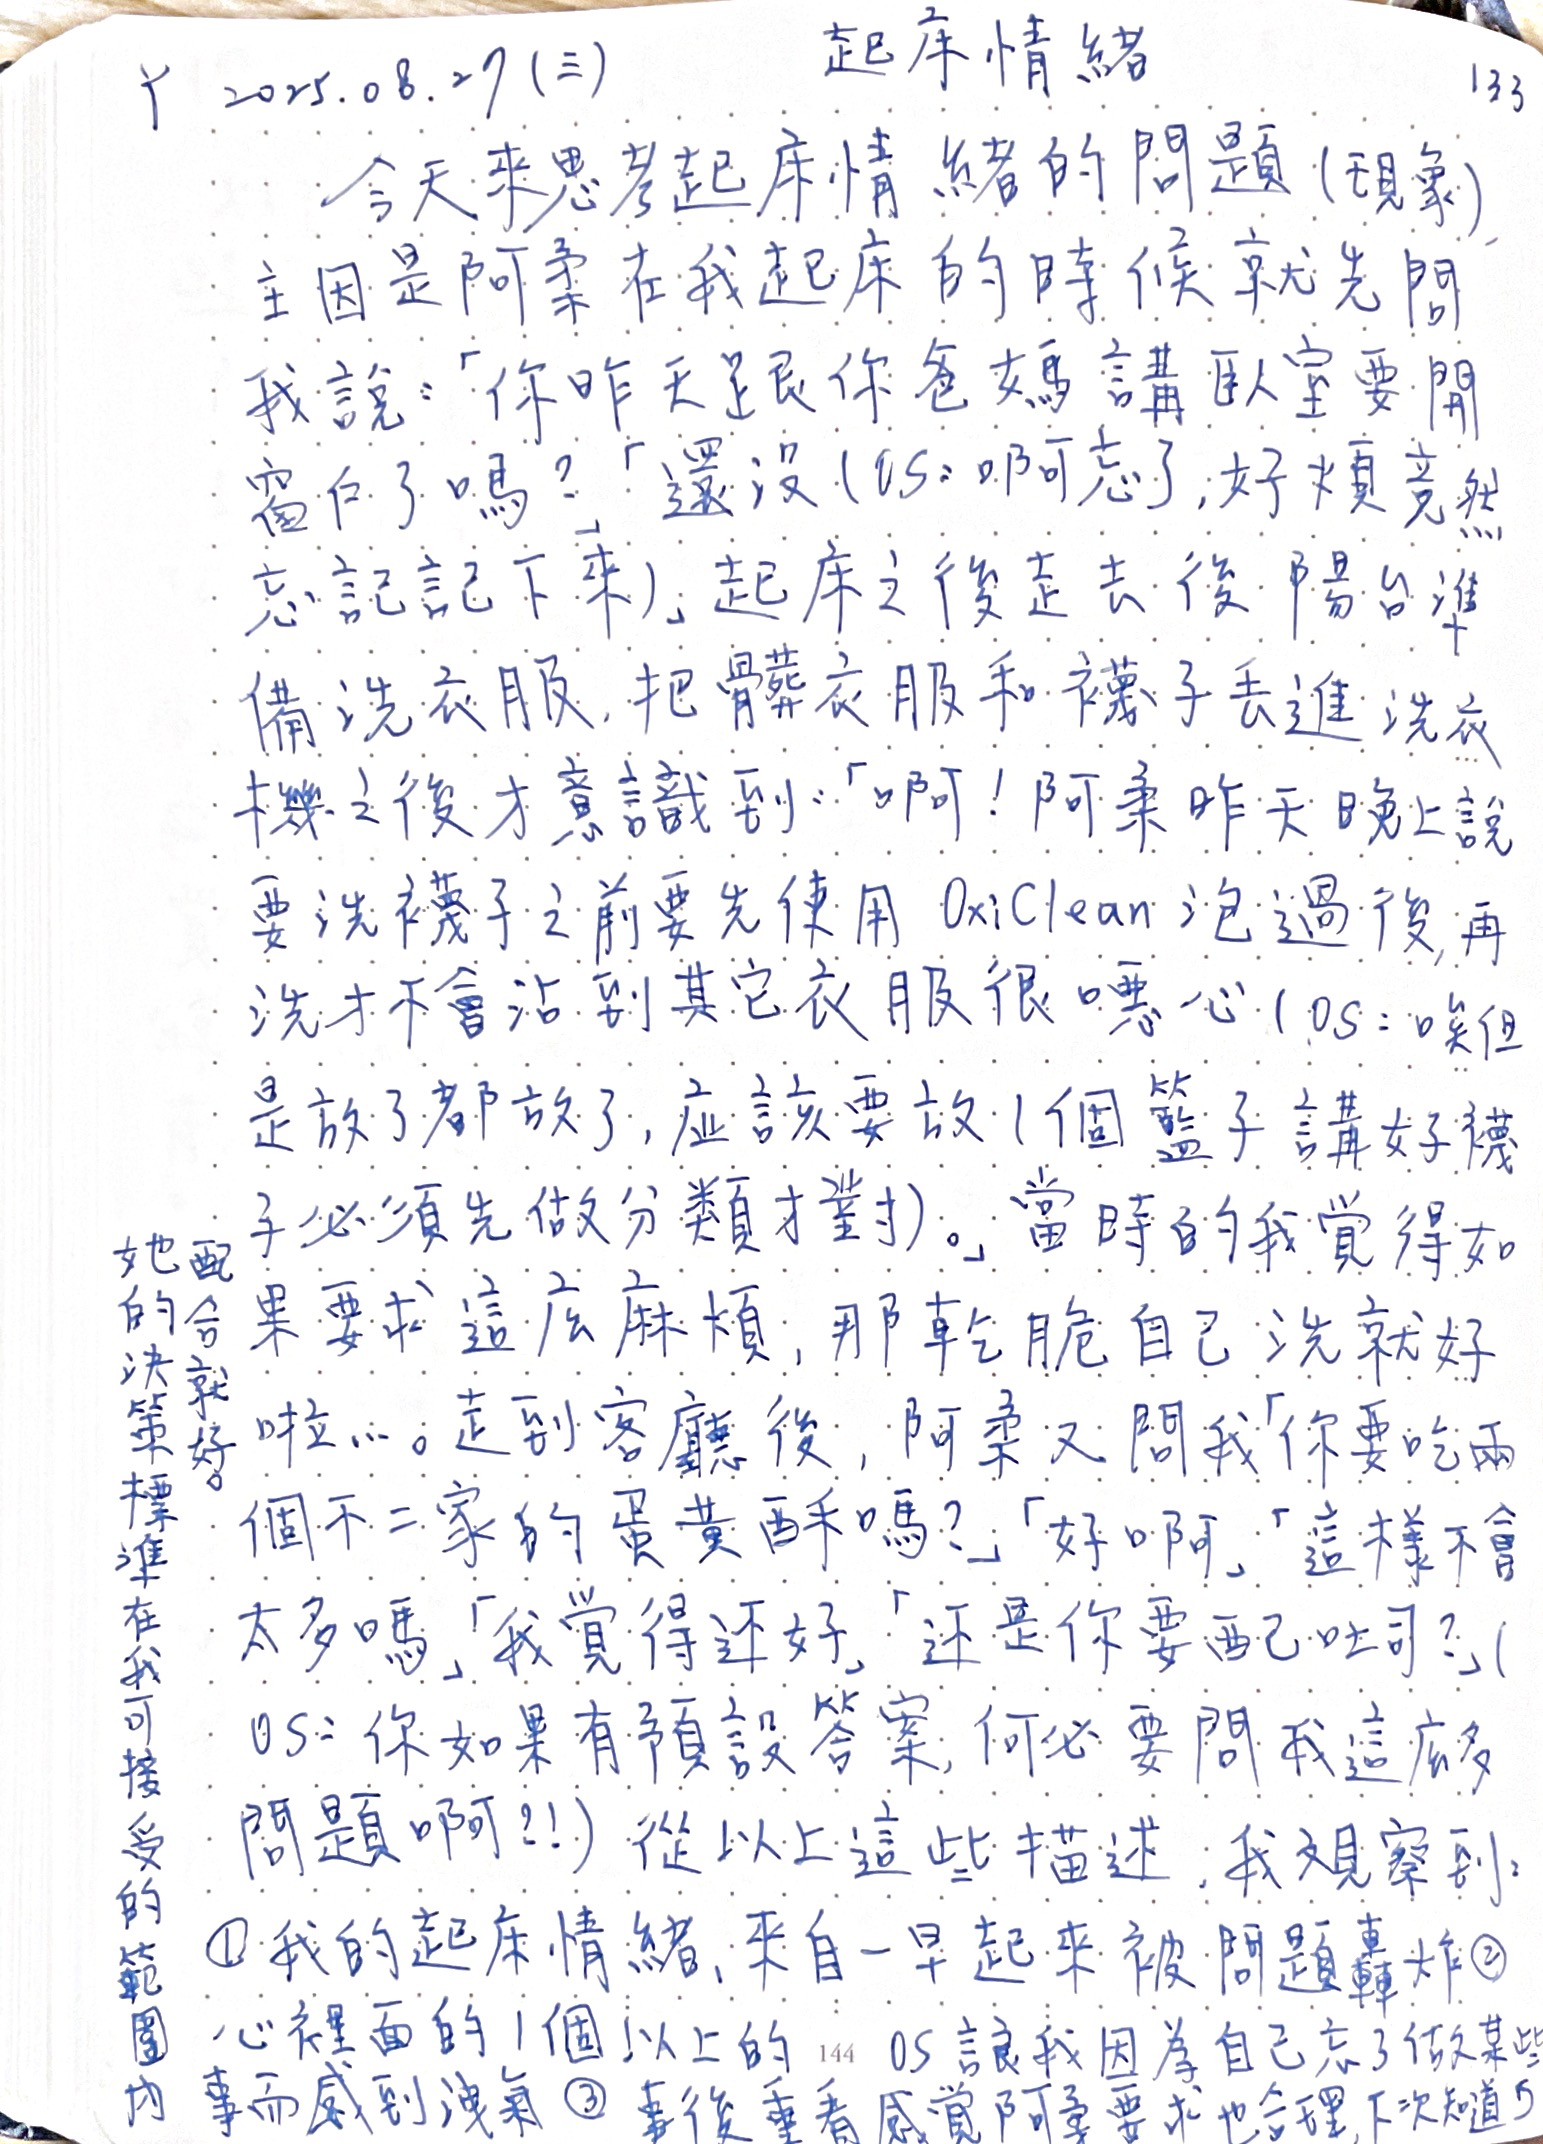 丫 2025.08.27(三) 起床情緒 133
今天來思考起床情緒的問題(現象),
主因是阿柔在我起床的時候就先問
我說:「你昨天跟你爸媽講臥室要開
窗户了嗎?」「還沒(OS:啊忘了,好煩竟然
忘記記下來)」起床之後走去後陽台準
備洗衣服,把髒衣服和襪子丟進洗衣
機之後才意識到:「啊!阿柔昨天晚上說
要洗襪子之前要先使用OxiClean泡過後,再
洗才不會沾到其它衣服很噁心(OS:唉但
是放了都放了,应該要放1個籃子講好襪
子必須先做分類才對)。」當時的我覺得如
果要求這広麻煩,那乾脆自己洗就好
啦…。走到客廳後,阿柔又問我「你要吃兩
個不二家的蛋黃酥嗎?」「好啊」「這樣不會
太多嗎」「我覺得还好」「还是你要配吐司?」(
OS:你如果有預設答案,何必要問我這広多
問題啊?!)從以上這些描述,我观察到:
①我的起床情緒,來自一早起來被問題轟炸②
心裡面的1個以上的OS讓我因為自己忘了做某些
事而感到洩氣③事後重看感覺阿柔要求也合理,下次知道了
配合就好。
她的決策標準在我可接受的範圍內
144